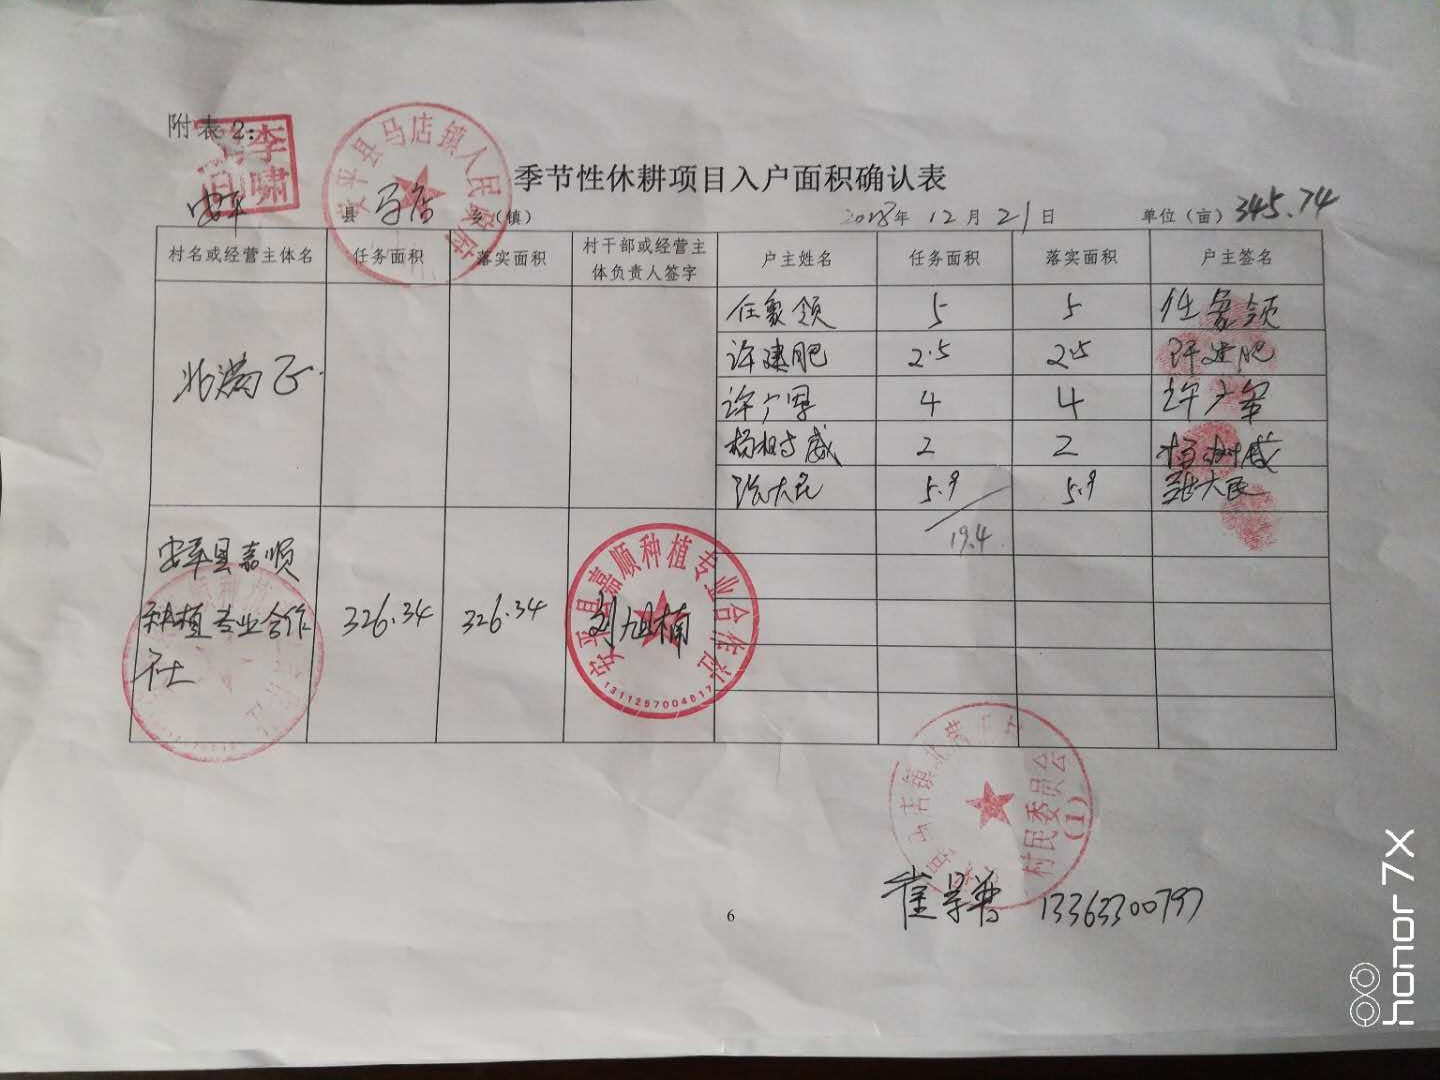 附表2:
季节性休耕项目入户面积确认表
安平 县 马店 乡（镇） 2018年 12月 21日 单位（亩） 345.74
村名或经营主体名 任务面积 落实面积 村干部或经营主体负责人签字 户主姓名 任务面积 落实面积 户主签名
北满正
任象领 5 5 任象领
许建肥 2.5 2.5 许建肥
许广军 4 4 许广军
杨树威 2 2 杨树威
张大民 5.9 5.9 张大民
19.4
安平县嘉顺
种植专业合作
社
326.34 326.34 刘旭楠
安平县马店镇人民政府
李啸
安平县嘉顺种植专业合作社
1311257004617
村民委员会
(1)
崔景普 13363300797
6
honor 7X